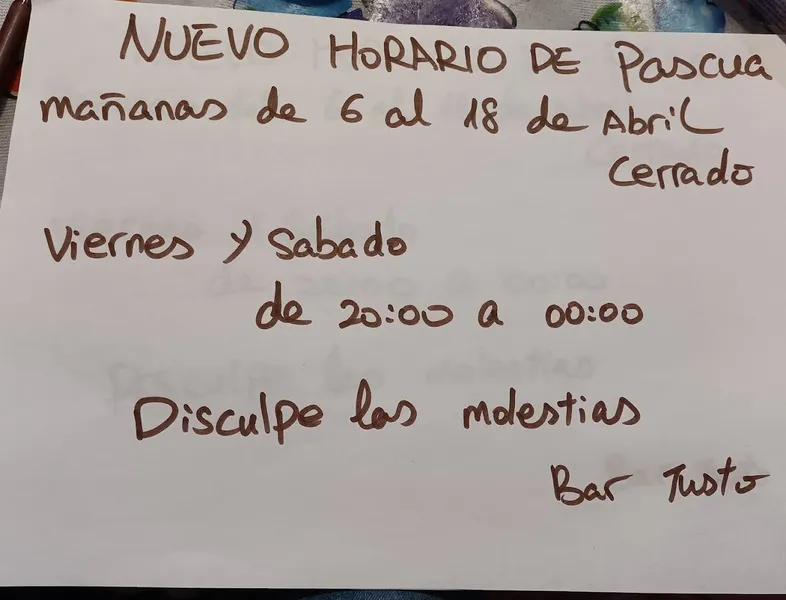 NUEVO HORARIO DE Pascua
mañanas de 6 al 18 de Abril
Cerrado
Viernes y Sabado
de 20:00 a 00:00
Disculpe las molestias
Bar Tusto